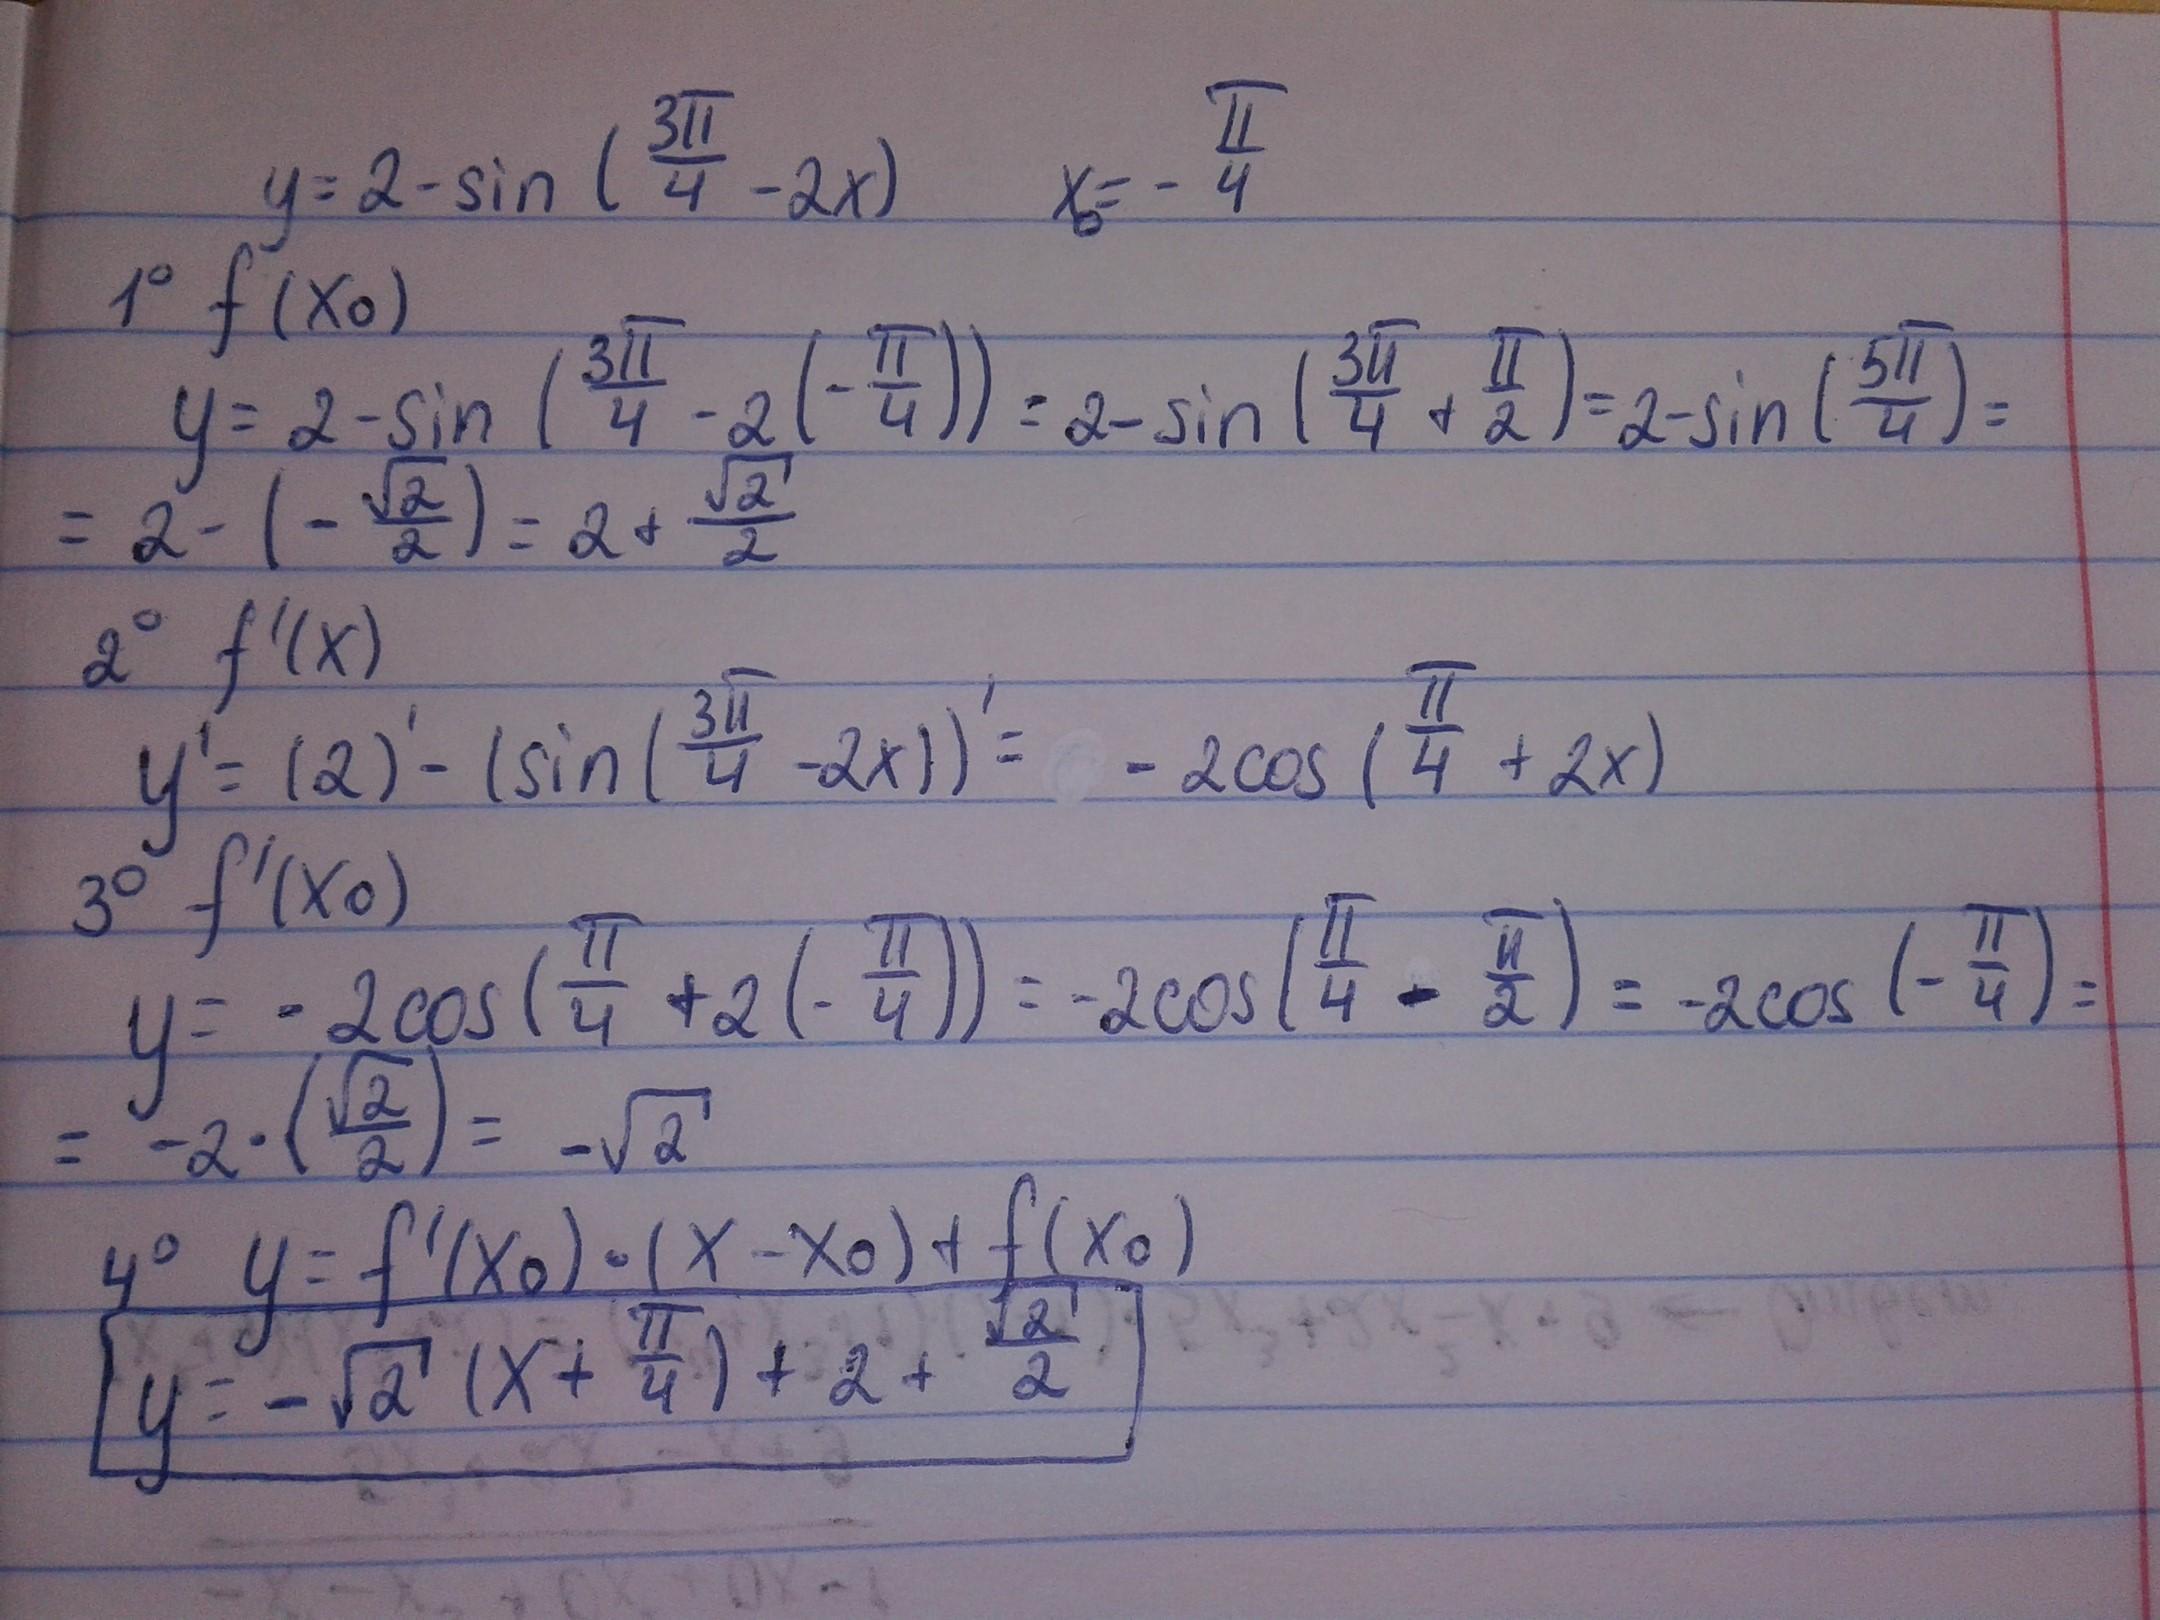 y = 2 - sin (3π/4 - 2x)    x₀ = - π/4
1° f(x₀)
y = 2 - sin (3π/4 - 2(-π/4)) = 2 - sin (3π/4 + π/2) = 2 - sin (5π/4) =
= 2 - (-√2/2) = 2 + √2/2
2° f'(x)
y' = (2)' - (sin(3π/4 - 2x))' = - 2cos (π/4 + 2x)
3° f'(x₀)
y = - 2cos (π/4 + 2(-π/4)) = -2cos (π/4 - π/2) = -2cos (-π/4) =
= -2·(√2/2) = -√2
4° y = f'(x₀)·(x - x₀) + f(x₀)
y = -√2 (x + π/4) + 2 + √2/2